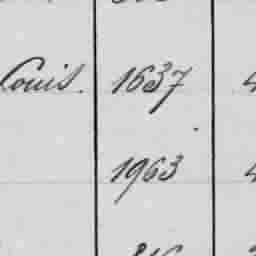 Louis. 1637 4
1963 4